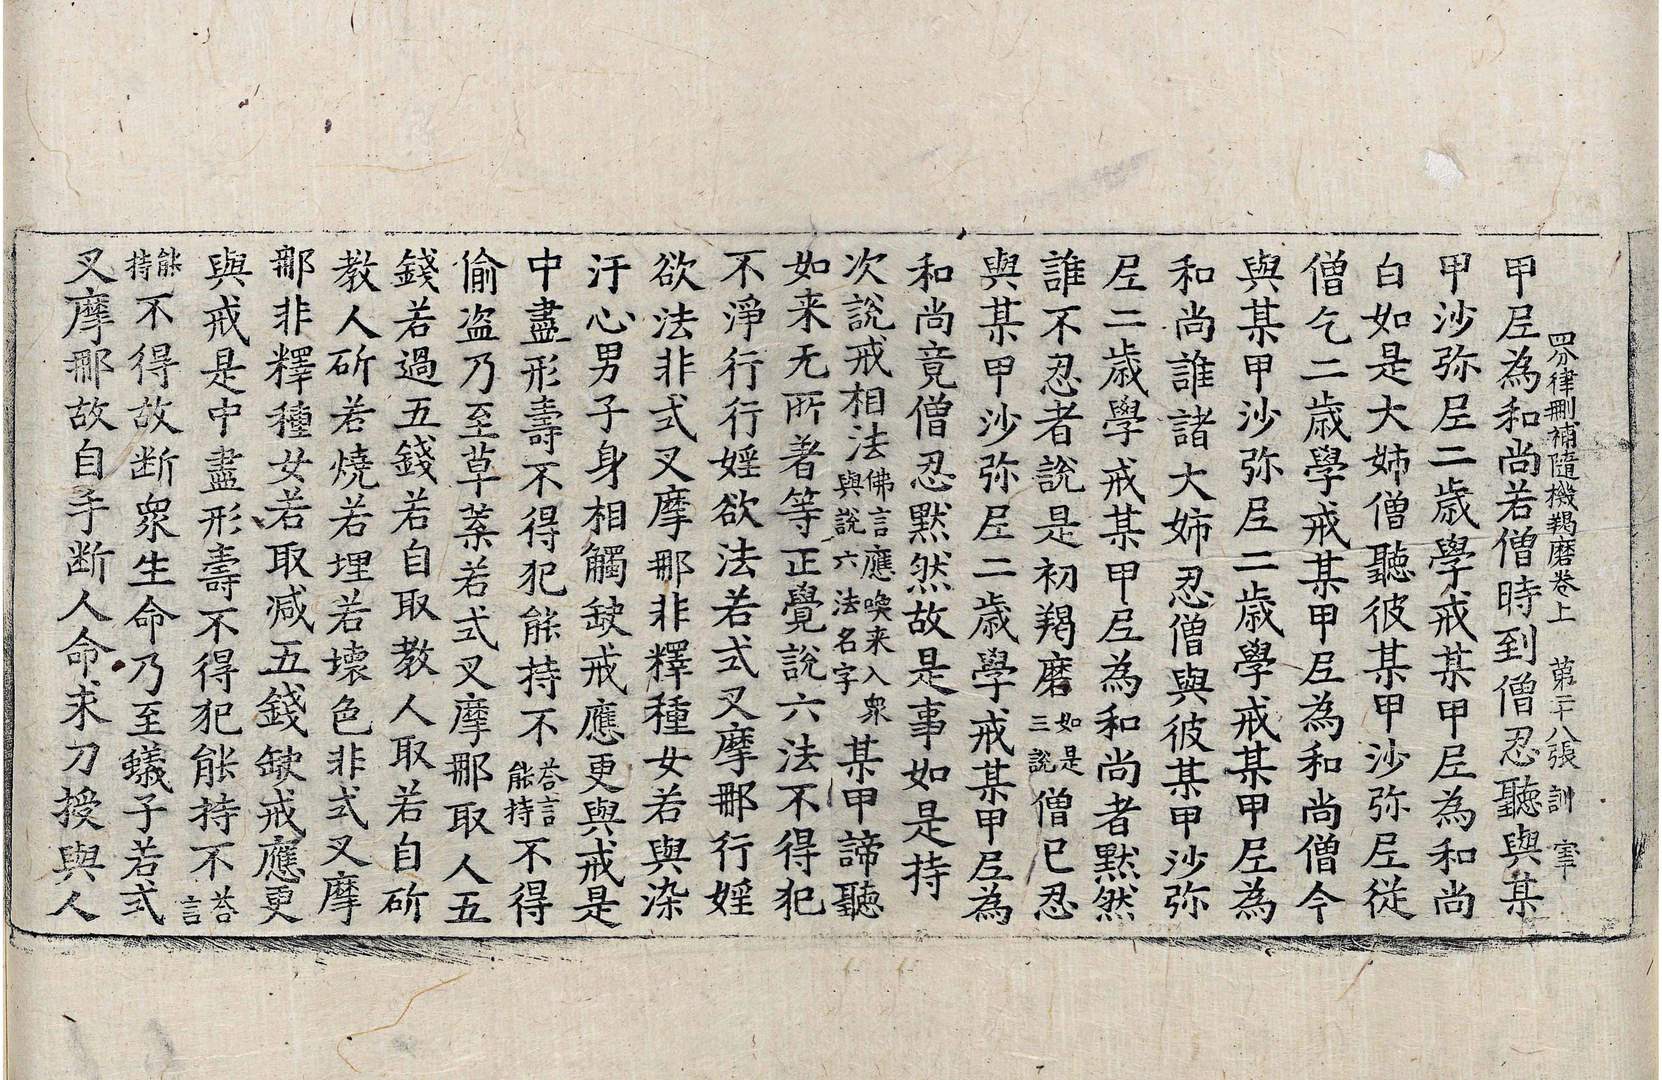 四分律刪補隨機羯磨卷上 第二十八張 訓 宰
甲𡰱為和尚若僧時到僧忍聽與某
甲沙弥𡰱二歳學戒某甲𡰱為和尚
白如是大姉僧聽彼某甲沙弥𡰱從
僧乞二歳學戒某甲𡰱為和尚僧今
與某甲沙弥𡰱二歳學戒某甲𡰱為
和尚誰諸大姉忍僧與彼某甲沙弥
𡰱二歳學戒某甲𡰱為和尚者默然
誰不忍者說是初羯磨如是三說僧已忍
與某甲沙弥𡰱二歳學戒某甲𡰱為
和尚竟僧忍默然故是事如是持
次說戒相法佛言應喚来入衆與說六法名字某甲諦聽
如来无所著等正覺說六法不得犯
不淨行行婬欲法若式叉摩那行婬
欲法非式叉摩那非釋種女若與染
汙心男子身相觸缺戒應更與戒是
中盡形壽不得犯能持不荅言能持不得
偷盗乃至草葉若式叉摩那取人五
錢若過五錢若自取教人取若自斫
教人斫若燒若埋若壊色非式叉摩
那非釋種女若取減五錢缺戒應更
與戒是中盡形壽不得犯能持不荅言
能持不得故断衆生命乃至蟻子若式
叉摩那故自手断人命求刀授與人